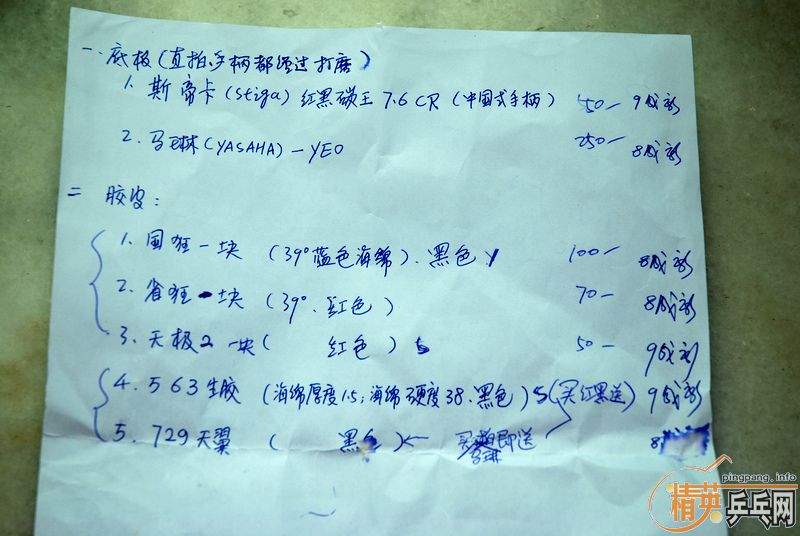 一.底板(直拍.手柄都经过打磨)
1.斯帝卡(stiga)红黑碳王7.6CR(中国式手柄) 50— 9成新
2.马琳(YASAHA)—YEO 250— 8成新
二 胶皮:
1.国狂一块(39°蓝色海绵).黑色 100— 8成新
2.省狂 块(39°.红色) 70— 8成新
3.天极2一块( 红色) 50— 9成新
4.563生胶(海绵厚度1.5;海绵硬度38.黑色)5(买红黑送) 9成新
5.729天翼( 黑色)← 买 即送 8
pingpang.info
精英乒乓网